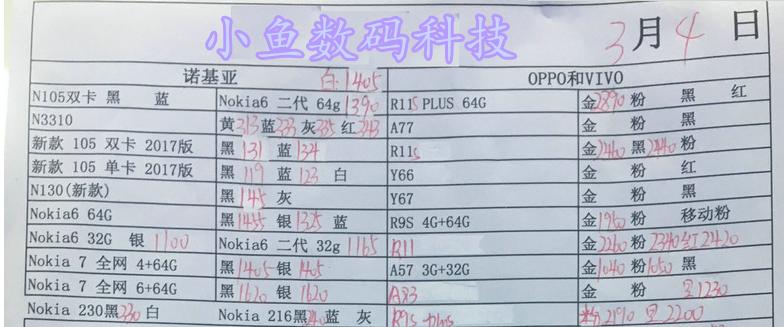 小鱼数码科技
3月4日
诺基亚 白1405 OPPO和VIVO
N105双卡 黑 蓝 Nokia6 二代 64g 1390 R11S PLUS 64G 金2890 粉 黑 红
N3310 黄313 蓝233 灰235 红243 A77 金 粉 黑
新款 105 双卡 2017版 黑 131 蓝 134 R11s 金2460 黑2440 粉
新款 105 单卡 2017版 黑 119 蓝 123 白 Y66 金 粉 红
N130(新款) 黑 145 灰 Y67 金 粉 黑
Nokia6 64G 黑1455 银1325 蓝 R9S 4G+64G 金1960 粉 移动粉
Nokia6 32G 银 1100 Nokia6 二代 32g 1165 R11 金2260 粉2340 红2420
Nokia 7 全网 4+64G 黑1405 银1405 A57 3G+32G 金1040 粉1050 黑
Nokia 7 全网 6+64G 黑1620 银1620 A83 金 粉 黑1230
Nokia 230黑330 白 Nokia 216黑 蓝 灰 粉2190 黑2200